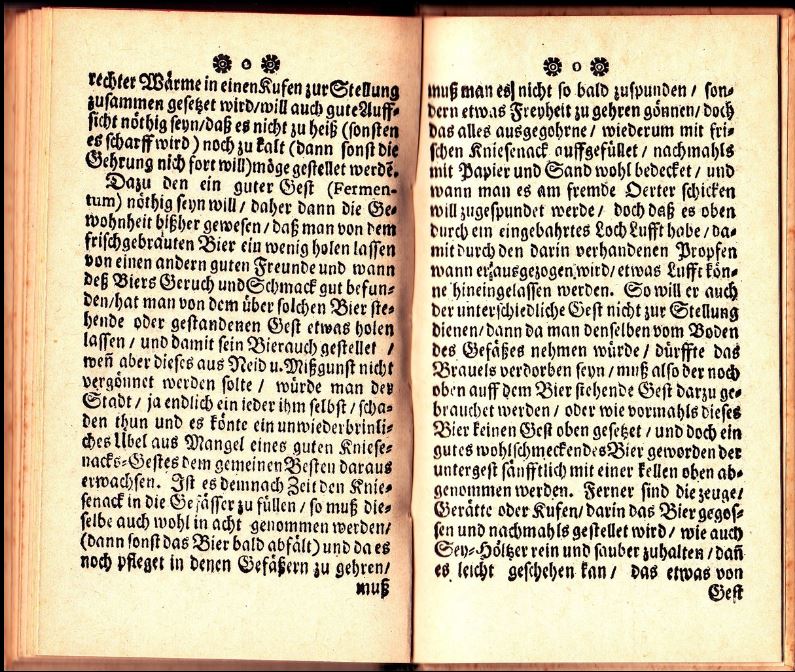 rechter Wärme in einen Kufen zur Stellung
zusammen gesetzet wird/will auch gute Auff-
sicht nöthig seyn/daß es nicht zu heiß (sonsten
es scharff wird) noch zu kalt (dann sonst die
Gehrung nich fort will) möge gestellet werdē.
Dazu den ein guter Gest (Fermen-
tum) nöthig seyn will/ daher dann die Ge-
wohnheit bißher gewesen/ daß man von dem
frischgebrauten Bier ein wenig holen lassen
von einen andern guten Freunde und wann
deß Biers Geruch und Schmack gut befun-
den/hat man von dem über solchen Bier ste-
hende oder gestandenen Gest etwas holen
lassen/ und damit sein Bier auch gestellet /
weñ aber dieses aus Neid u. Mißgunst nicht
vergönnet werden solte / würde man der
Stadt/ ja endlich ein ieder ihm selbst/ scha-
den thun und es könte ein unwiederbrinli-
ches Übel aus Mangel eines guten Kniese-
nacks-Gestes dem gemeinen Besten daraus
erwachsen. Ist es demnach Zeit den Knie-
senack in die Gefässer zu füllen/ so muß die-
selbe auch wohl in acht genommen werden/
(dann sonst das Bier bald abfält) und da es
noch pfleget in denen Gefäßern zu gehren/
muß
muß man es nicht so bald zuspunden / son-
dern etwas Freyheit zu gehren gönnen/ doch
das alles ausgegohrne / wiederum mit fri-
schen Kniesenack auffgefüllet / nachmahls
mit Papier und Sand wohl bedecket / und
wann man es am fremde Oerter schicken
will zugespundet werde / doch daß es oben
durch ein eingebahrtes Loch Lufft habe / da-
mit durch den darin verhandenen Propfen
wann er ausgezogen wird/ etwas Lufft kön-
ne hineingelassen werden. So will er auch
der unterschiedliche Gest nicht zur Stellung
dienen/ dann da man denselben vom Boden
des Gefäßes nehmen würde / dürffte das
Brauels verdorben seyn / muß also der noch
oben auff dem Bier stehende Gest darzu ge-
brauchet werden / oder wie vormahls dieses
Bier keinen Gest oben gesetzet / und doch ein
gutes wohlschmeckendes Bier geworden der
untergest sänfftlich mit einer kellen oben ab-
genommen werden. Ferner sind die zeuge/
Gerätte oder Kufen/ darin das Bier gegos-
sen und nachmahls gestellet wird / wie auch
Sey-Höltzer rein und sauber zuhalten / dañ
es leicht geschehen kan / das etwas von
Gest